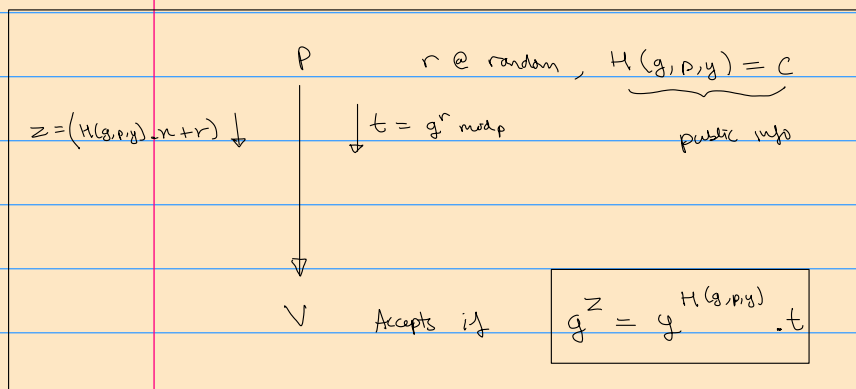 P r @ random, H(g,p,y) = C
z=(H(g,p,y).x+r) ↓ ↓ t = g^r mod p public info
V Accepts if g^z = y^H(g,p,y) .t